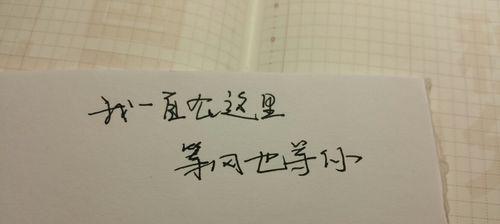 我一直在这里
等风也等你